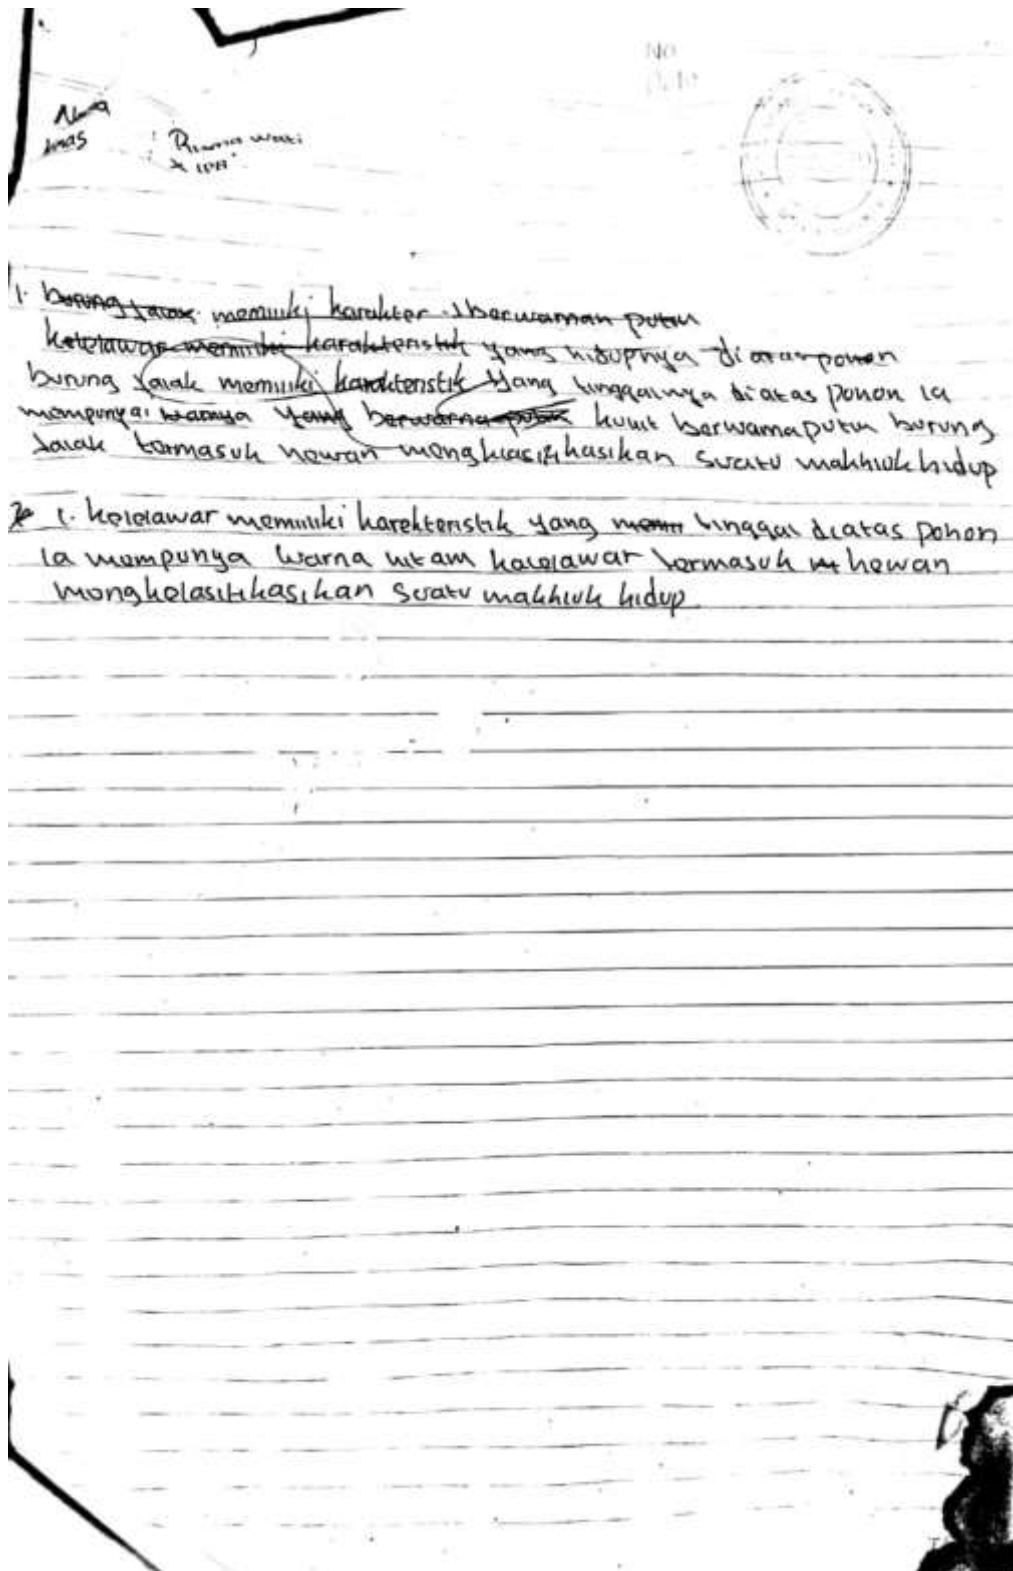 No
Date
Nama
kelas
: Risma wati
X IPA
1. burung jalak memiliki karakter berwarnan putih
kelelawar memiliki karakteristik yang hidupnya diatas pohon
burung jalak memiliki karakteristik yang tinggalnya diatas pohon ia
mempunyai warnya yang berwarna putih kulit berwarna putih burung
Jalak termasuk hewan mengklasifikasikan suatu makhluk hidup
2. kelelawar memiliki karekteristik yang tinggal diatas pohon
ia mempunya warna hitam kelelawar termasuk hewan
mengkelasifikasikan suatu makhluk hidup